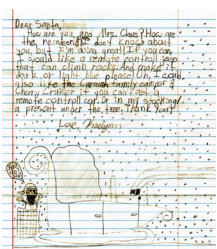 Dear Santa,
How are you and Mrs. Claus? How are
the reindeer? I don't know about
you, but I'm doing great! If you can
I would like a remote control jeep
that can climb rocks. And make it
dark or light blue please! Oh, I could
also like the family camper &
Cherry Cruiser if you can't get a
remote control car. Or in my stocking/
a present under the tree. Thank You!
Love,